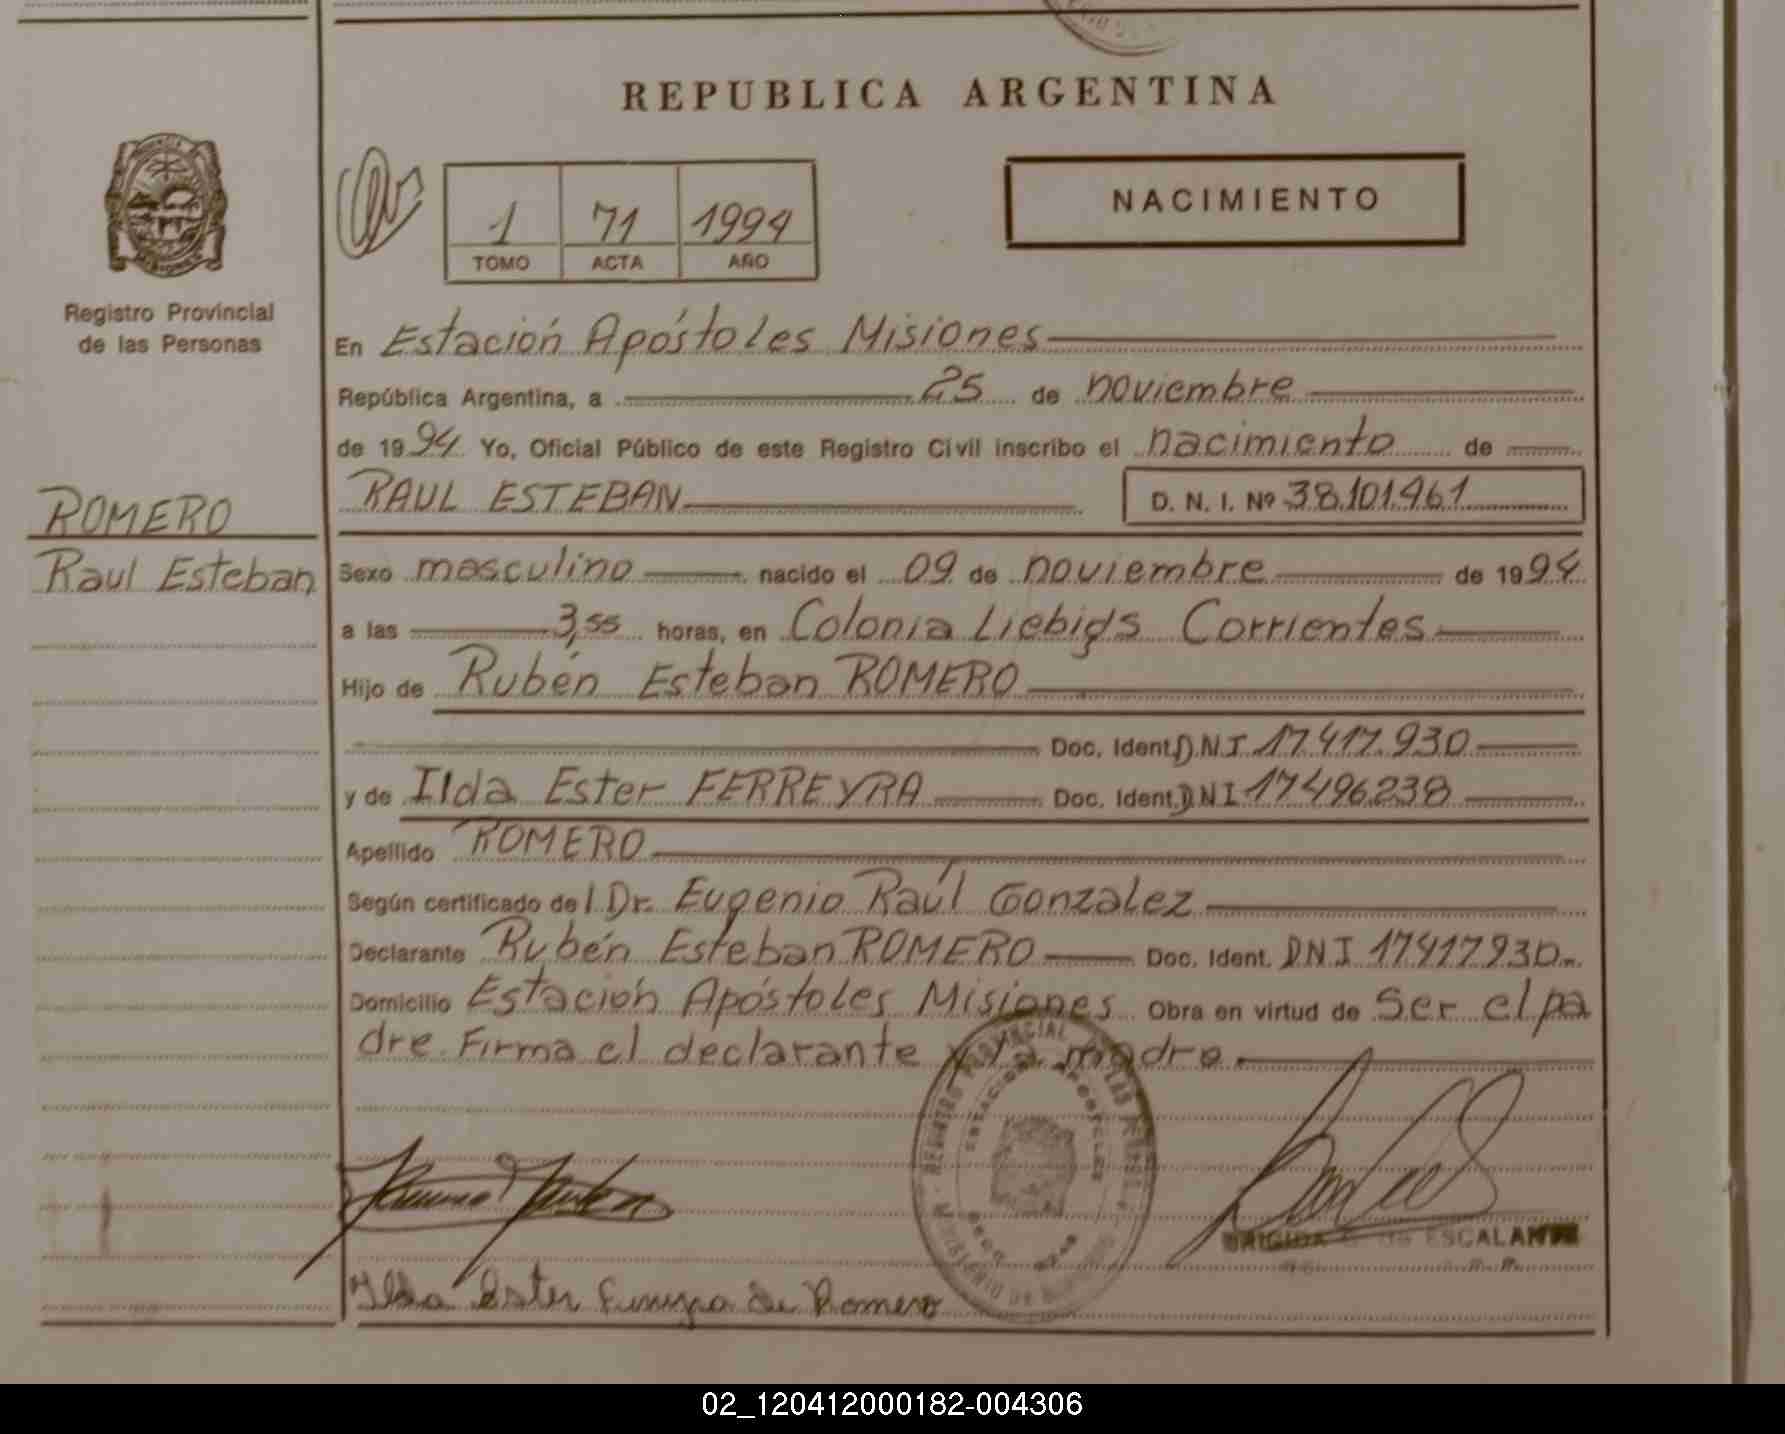 REPUBLICA ARGENTINA
NACIMIENTO
1 71 1994
TOMO ACTA AÑO
MISIONES
Registro Provincial
de las Personas
ROMERO
Raul Esteban
En Estación Apóstoles Misiones
República Argentina, a 25 de noviembre
de 1994 Yo, Oficial Público de este Registro Civil inscribo el nacimiento de
RAUL ESTEBAN D. N. I. Nº 38.101.961
Sexo masculino nacido el 09 de noviembre de 1994
a las 3,55 horas, en Colonia Liebigs Corrientes
Hijo de Rubén Esteban ROMERO
Doc. Ident. DNI 17.417.930
y de Ilda Ester FERREYRA Doc. Ident. DNI 17496238
Apellido ROMERO
Según certificado del Dr. Eugenio Raúl Gonzalez
Declarante Rubén Esteban ROMERO Doc. Ident. DNI 17417930
Domicilio Estación Apóstoles Misiones Obra en virtud de Ser el pa
dre. Firma el declarante y la madre.
REGISTRO PROVINCIAL DE LAS PERSONAS
ESTACION APOSTOLES
MINISTERIO DE GOBIERNO
BRIGIDA DE ESCALANTE
Ilda Ester Ferreyra de Romero
02_120412000182-004306